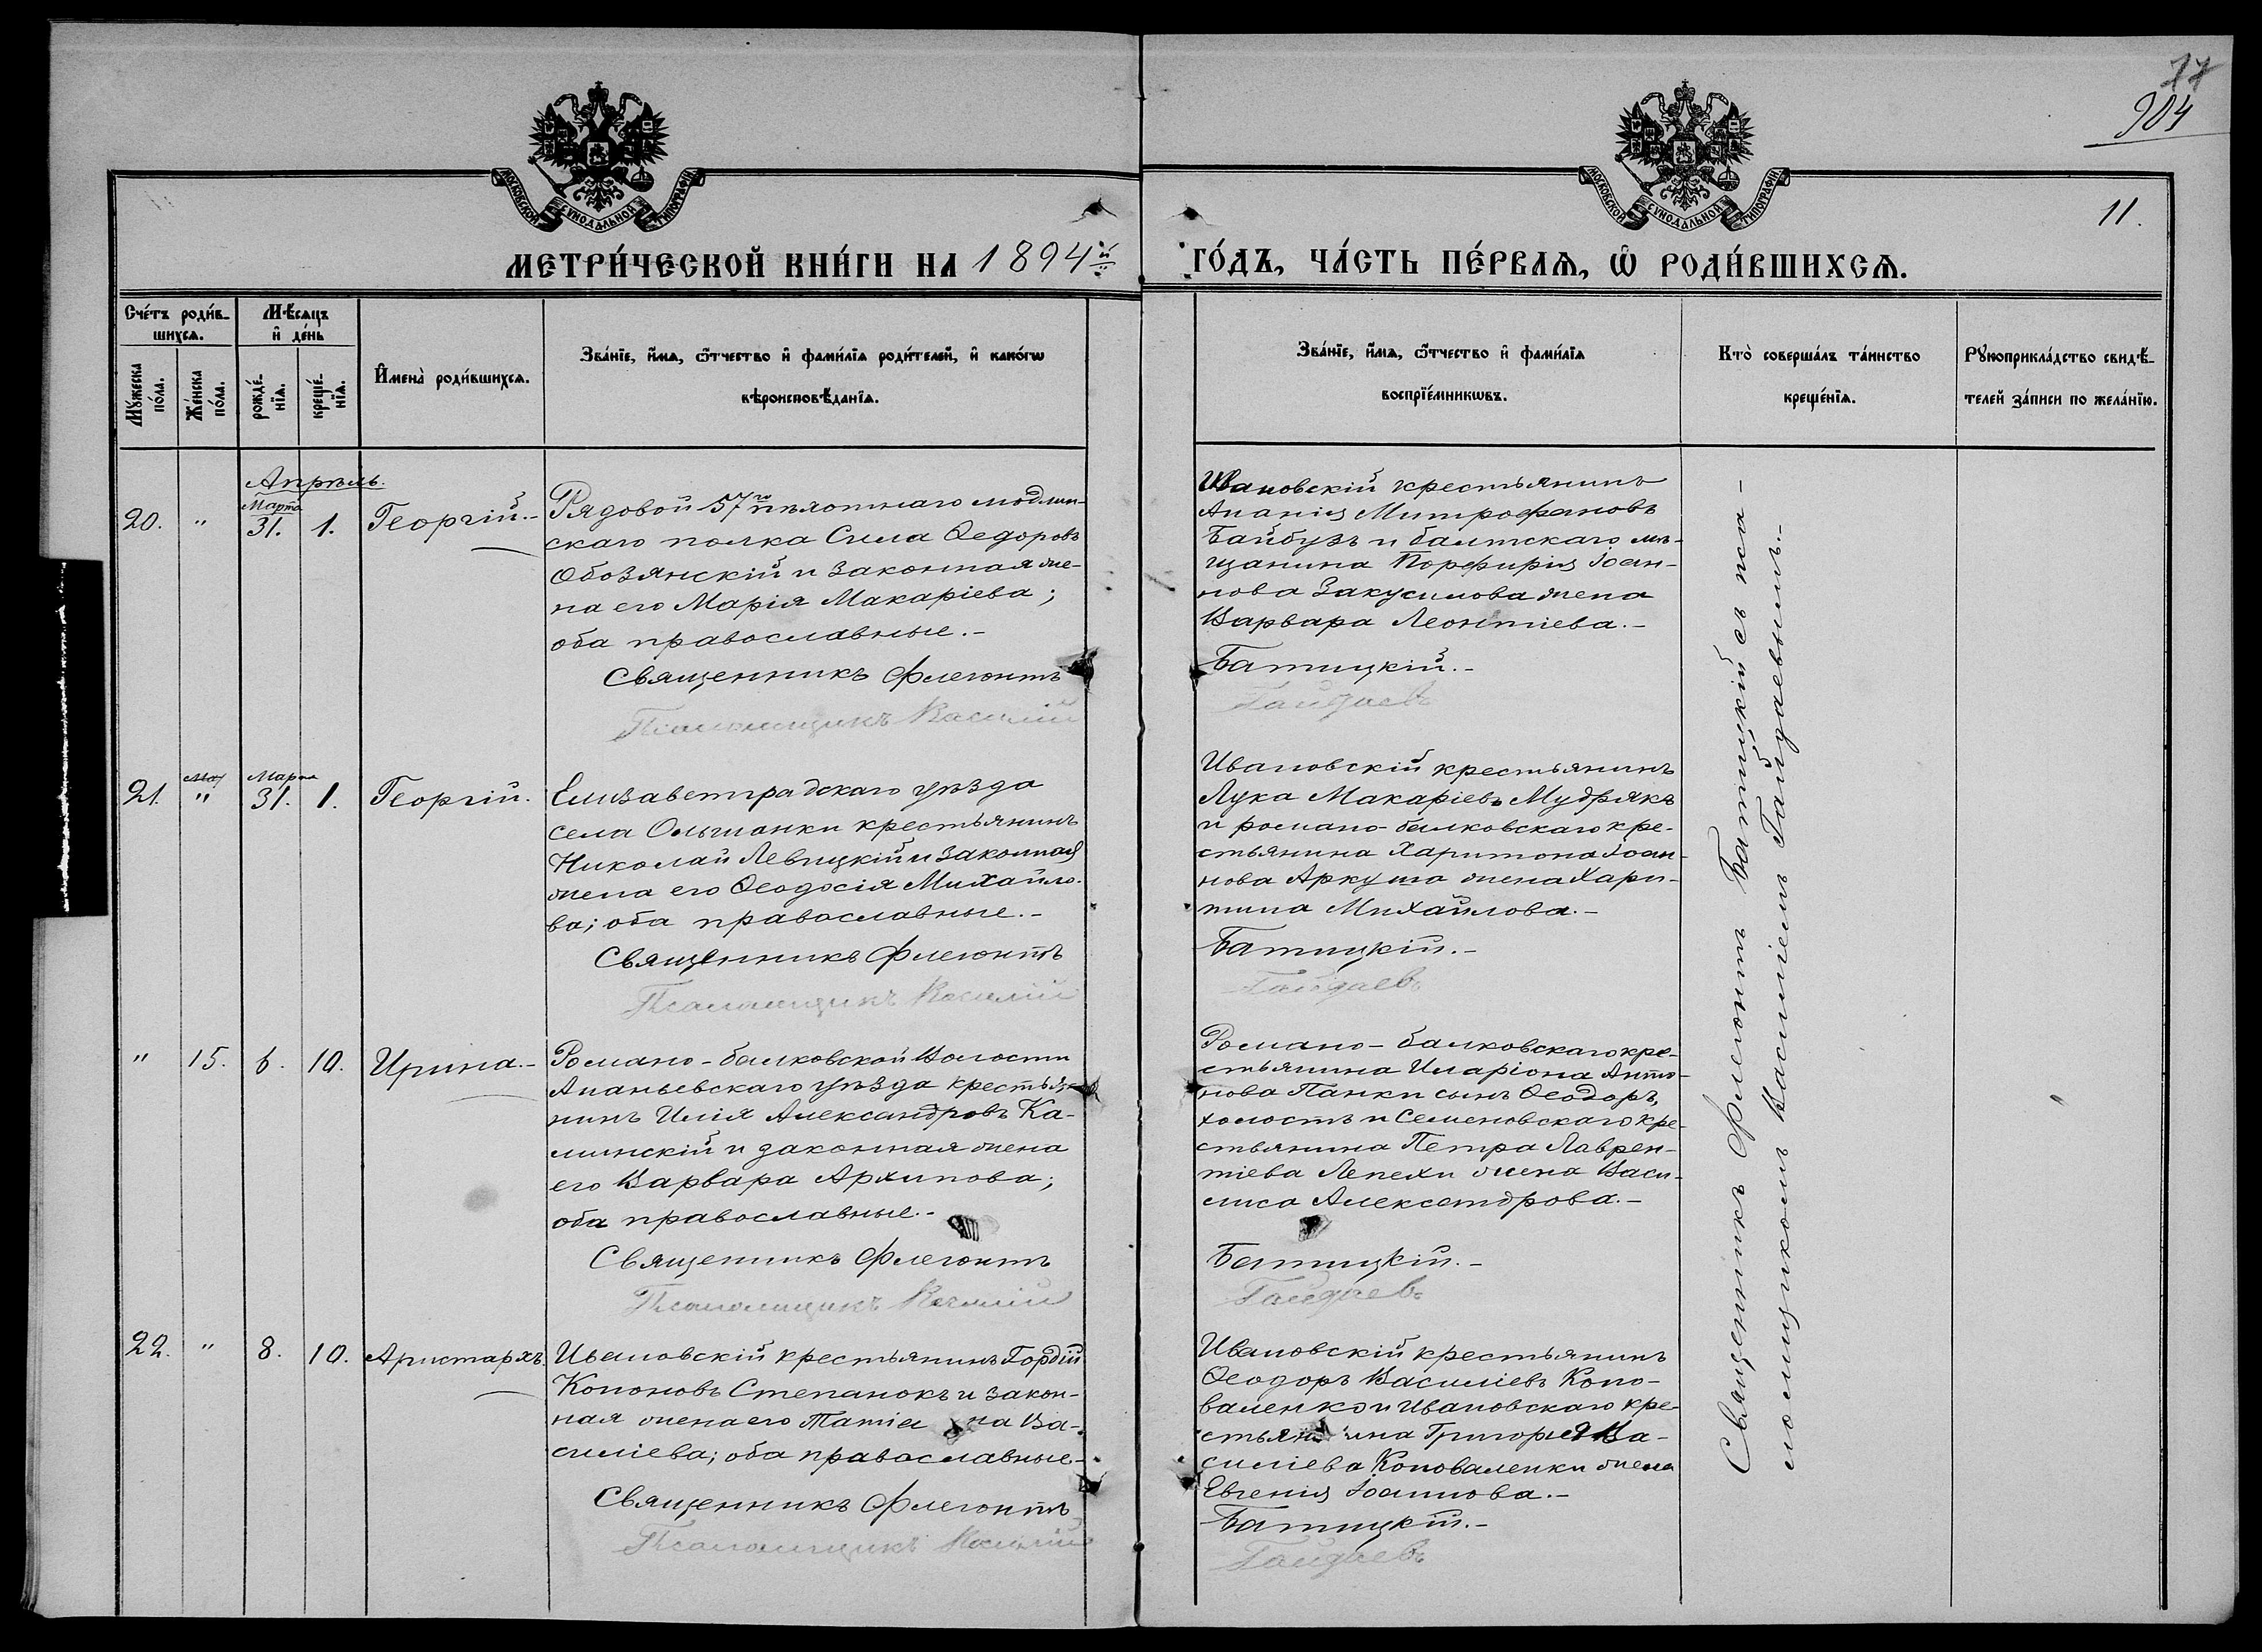 77
904
МОСКОВСКОЙ СѴНОДАЛЬНОЙ ТИПОГРАФІИ
МОСКОВСКОЙ СѴНОДАЛЬНОЙ ТИПОГРАФІИ
11.
МЕТРИ́ЧЕСКОЙ КНИ́ГИ НА 1894й
ГО́ДЪ, ЧА́СТЬ ПЕ́РВАѦ, Ѡ҆ РОДИ́ВШИХСѦ.
Сче́тъ роди́в-
шихсѧ.
Мѣ́сѧцъ
и҆ де́нь
Мꙋ́жеска
по́ла.
Же́нска
по́ла.
рожде́-
нїѧ.
креще́-
нїѧ.
И҆мена̀ роди́вшихсѧ.
Зва́нїе, и҆́мѧ, ѻ҆́тчество и҆ фами́лїѧ роди́телей, и҆ како́гѡ
вѣроисповѣ́данїѧ.
Зва́нїе, и҆́мѧ, ѻ҆́тчество и҆ фами́лїѧ
воспрїе́мникѡвъ.
Кто̀ соверша́лъ та́инство
креще́нїѧ.
Рꙋкоприкла́дство свидѣ́-
телей за́писи по жела́нїю.
Апрѣль.
Марта
20. " 31. 1. Георгій.-
Рядовой 57го пѣхотнаго модлин-
скаго полка Сила Ѳедоровъ
Обозянскій и законная же-
на его Марія Макаріева;
оба православные.-
Священникъ Флегонтъ
Псаломщикъ Василій
Ивановскій крестьянинъ
Ананія Митрофановъ
Байбузъ и балтскаго мѣ-
щанина Порфирія Іоан-
нова Закусилова жена
Варвара Леонтіева.-
Батицкій.-
Гайдаевъ
Марта
21. " 31. 1. Георгій.
Елизаветградскаго уѣзда
села Ольшанки крестьянинъ
Николай Левицкій и законная
жена его Ѳеодосія Михайло-
ва; оба православные.-
Священникъ Флегонтъ
Псаломщикъ Василій
Ивановскій крестьянинъ
Лука Макаріевъ Мудрякъ
и романо-балковскаго кре-
стьянина Харитона Іоан-
нова Аркуша жена Хари-
тина Михайлова.-
Батицкій.-
Гайдаевъ
" 15. 6. 10. Ирина.-
Романо-балковской Волости
Ананьевскаго уѣзда крестья-
нинъ Илія Александровъ Ка-
линскій и законная жена
его Варвара Архипова;
оба православные.-
Священникъ Флегонтъ
Псаломщикъ Василій
Романо-балковскаго кре-
стьянина Иларіона Анто-
нова Панки сынъ Ѳеодоръ,
холостъ и Семеновскаго кре-
стьянина Петра Лаврен-
тіева Лепехи жена Васи-
лиса Александрова.-
Батицкій.-
Гайдаевъ
22. " 8. 10. Аристархъ.
Ивановскій крестьянинъ Гордій
Кононовъ Степанокъ и закон-
ная жена его Татіа на Ва-
силіева; оба православные.-
Священникъ Флегонтъ
Псаломщикъ Василій
Ивановскій крестьянинъ
Ѳеодоръ Василіевъ Коно-
валенко и Ивановскаго кре-
стьянина Григорія Ва-
силіева Коноваленки жена
Евгенія Іоаннова.-
Батицкій.-
Гайдаевъ
Священникъ Флегонтъ Батицкій съ пса-
ломщикомъ Василіемъ Гайдаевымъ.-